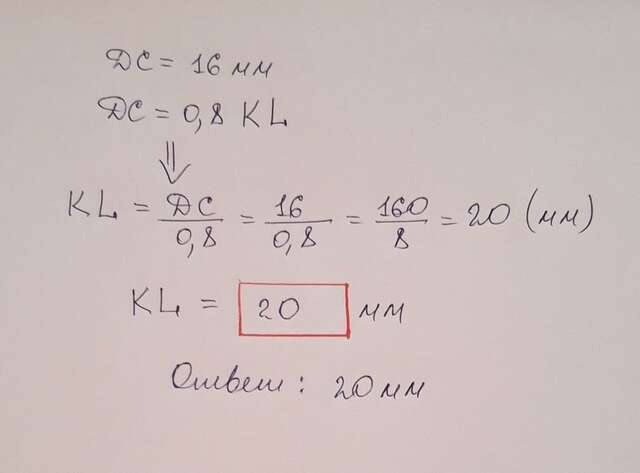 DC = 16 мм
DC = 0,8 KL
⇓
KL = DC/0,8 = 16/0,8 = 160/8 = 20 (мм)
KL = 20 мм
Ответ: 20 мм